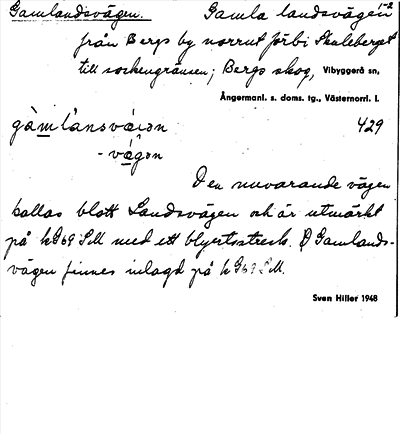 Gamlandsvägen. Gamla landsvägen 1-2
från Bergs by norrut förbi Skaleberget
till sockengränsen; Bergs skog, Vibyggerå sn,
Ångermanl. s. doms. tg., Västernorrl. l.
gàmlànsvä̀iən 429
-vä̀gən
Den nuvarande vägen
kallas blott Landsvägen och är utmärkt
på kG69SM med ett blyertsstreck. Gamlands-
vägen finnes inlagd på kG69SM.
Sven Hiller 1948